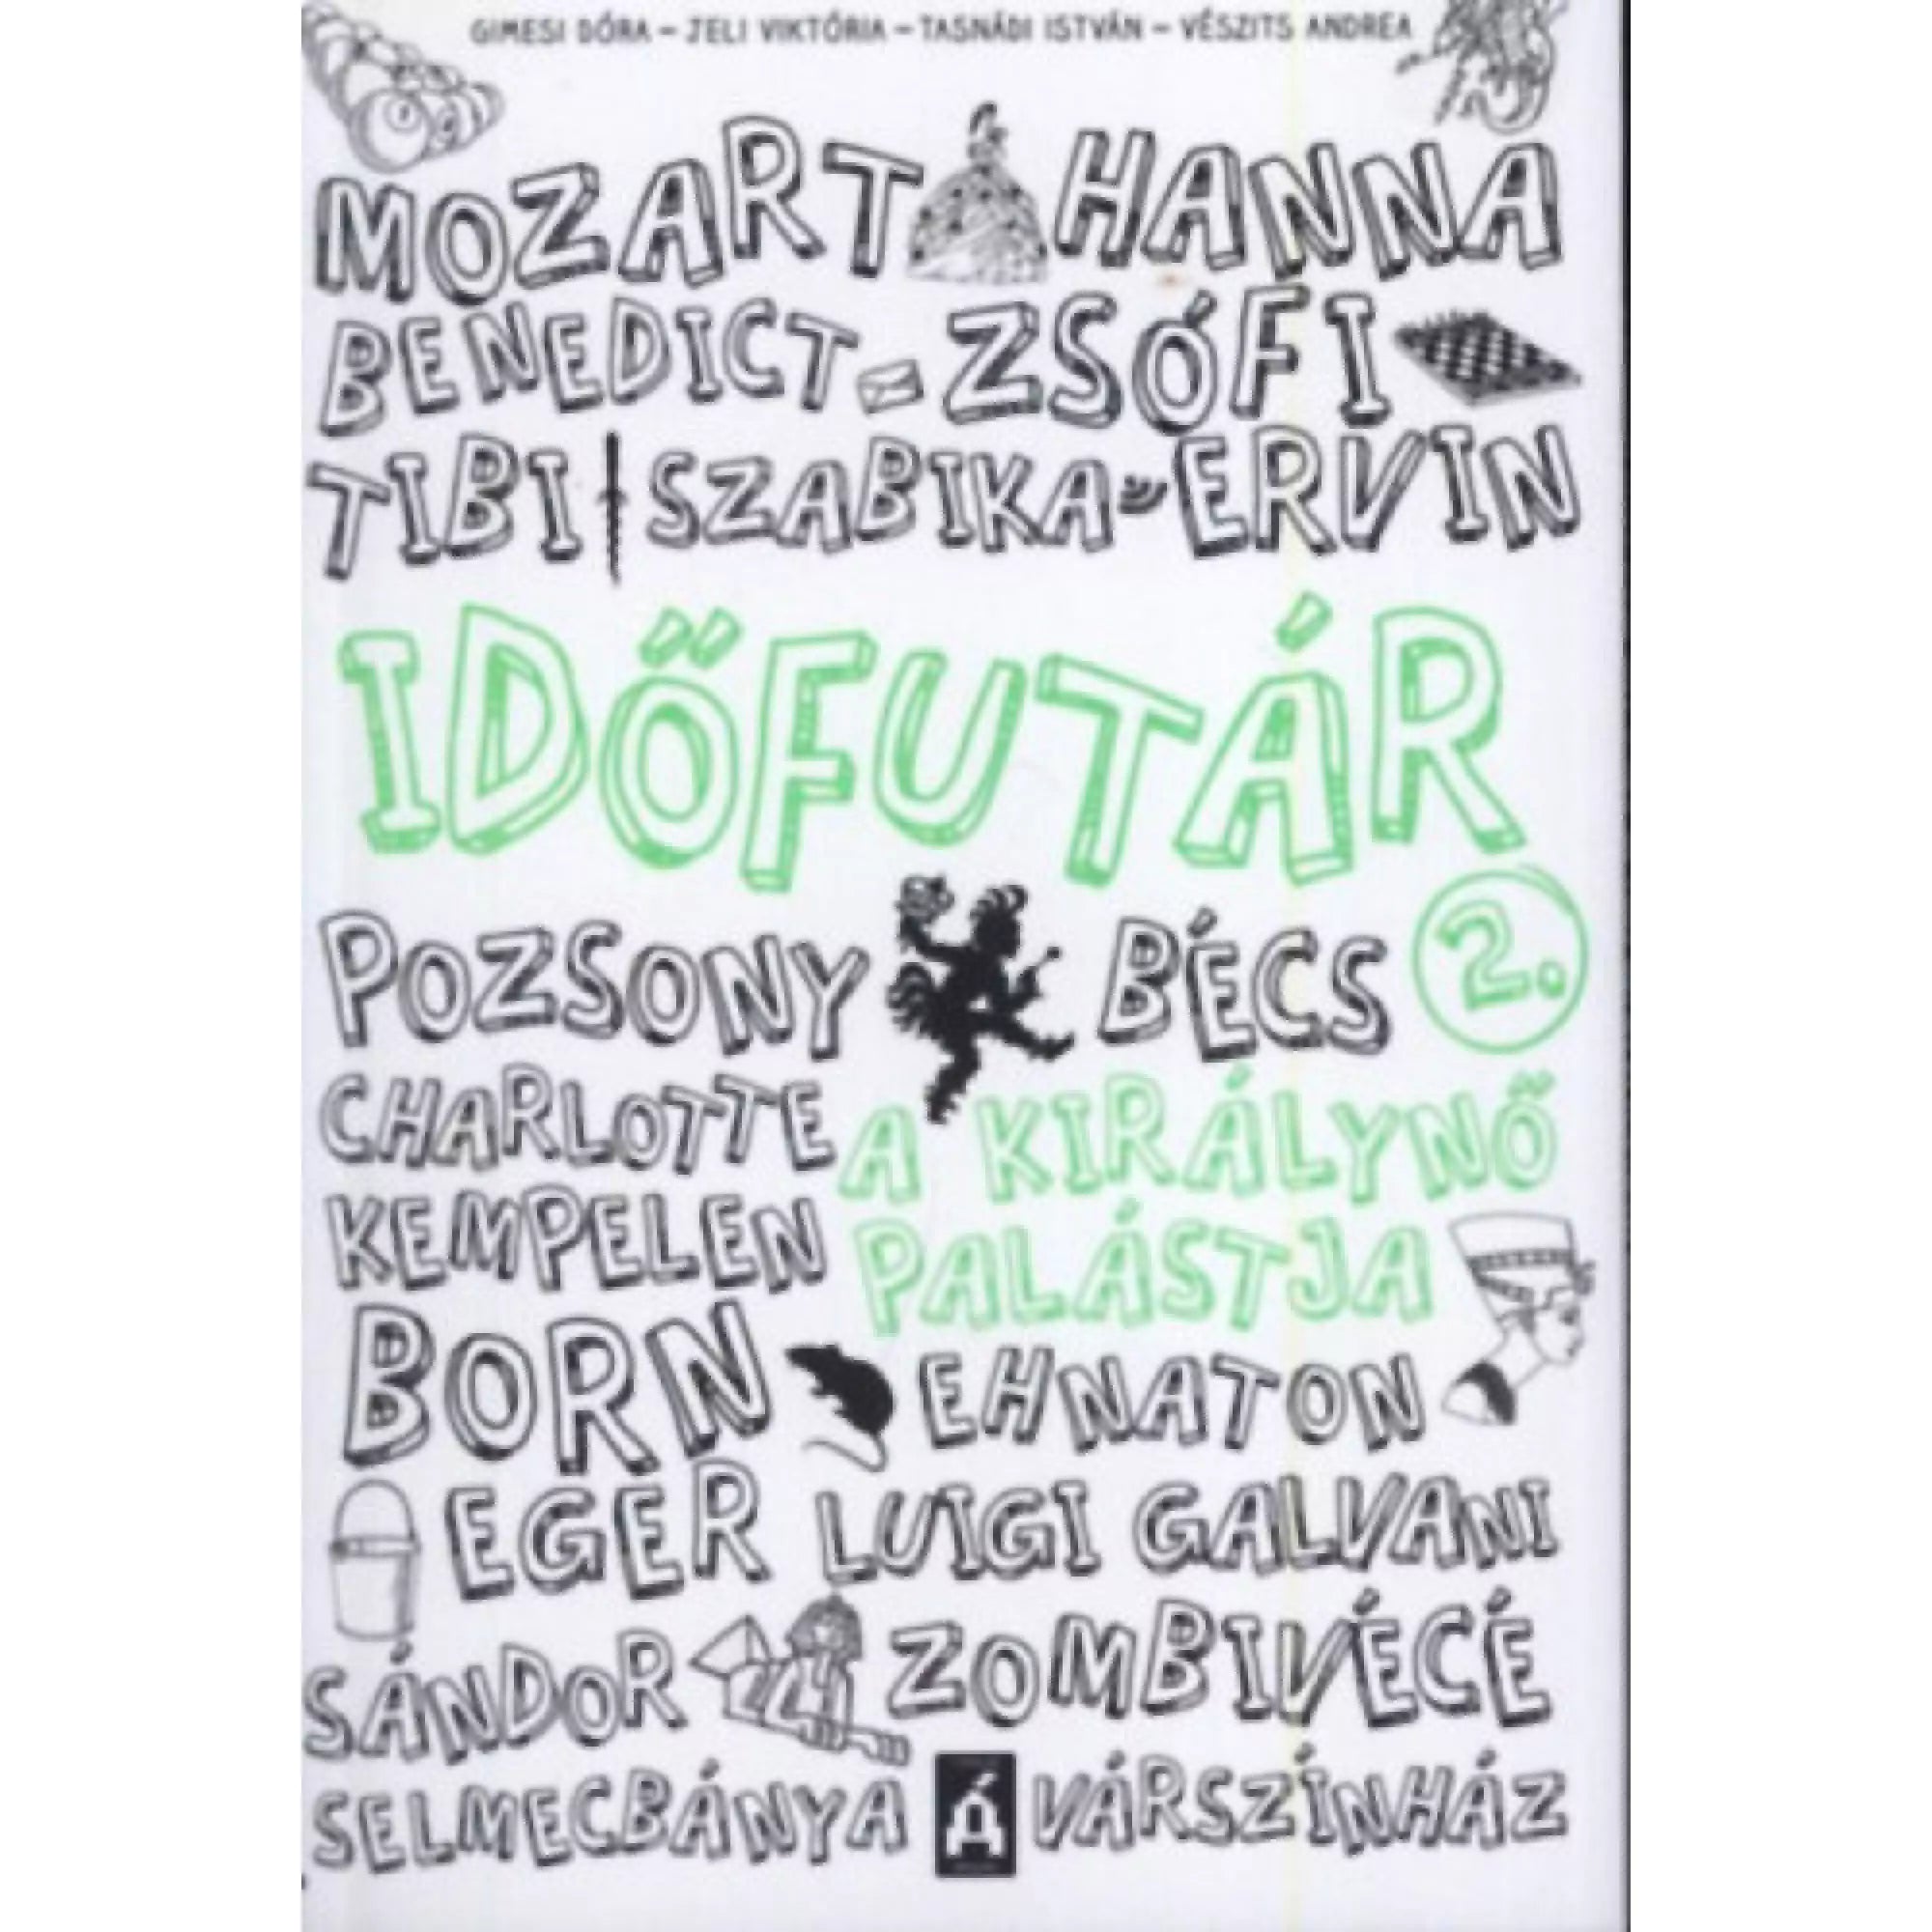 GIMESI DÓRA – JELI VIKTÓRIA – TASNÁDI ISTVÁN – VÉSZITS ANDREA
MOZART HANNA
BENEDICT ZSÓFI
TIBI SZABIKA ERVIN
IDŐFUTÁR
POZSONY BÉCS 2.
CHARLOTTE
A KIRÁLYNŐ
KEMPELEN
PALÁSTJA
BORN EHNATON
EGER LUIGI GALVANI
SÁNDOR ZOMBIVÉCÉ
SELMECBÁNYA VÁRSZÍNHÁZ